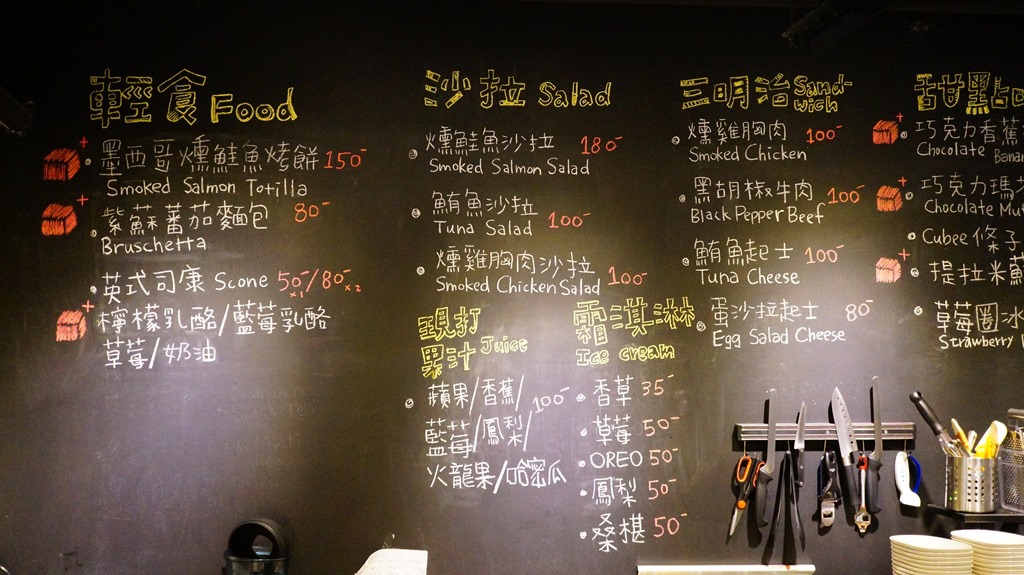 輕食 Food
墨西哥燻鮭魚烤餅 150-
Smoked Salmon Totilla
紫蘇蕃茄麵包 80-
Bruschetta
英式司康 Scone 50-x1/80-x2
檸檬乳酪/藍莓乳酪
草莓/奶油
沙拉 Salad
燻鮭魚沙拉 180-
Smoked Salmon Salad
鮪魚沙拉
Tuna Salad 100-
燻雞胸肉沙拉
Smoked Chicken Salad 100-
現打
果汁 Juice
蘋果/香蕉/ 100-
藍莓/鳳梨/
火龍果/哈密瓜
霜淇淋
Ice cream
香草 35-
草莓 50-
OREO 50-
鳳梨 50-
桑椹 50-
三明治 Sand-
wich
燻雞胸肉 100-
Smoked Chicken
黑胡椒牛肉 100-
Black Pepper Beef
鮪魚起士 100-
Tuna Cheese
蛋沙拉起士 80-
Egg Salad Cheese
甜點
巧克力香蕉
Chocolate Banan
巧克力瑪芬
Chocolate Mu
Cubee 條子
提拉米蘇
草莓圈冰
Strawberry